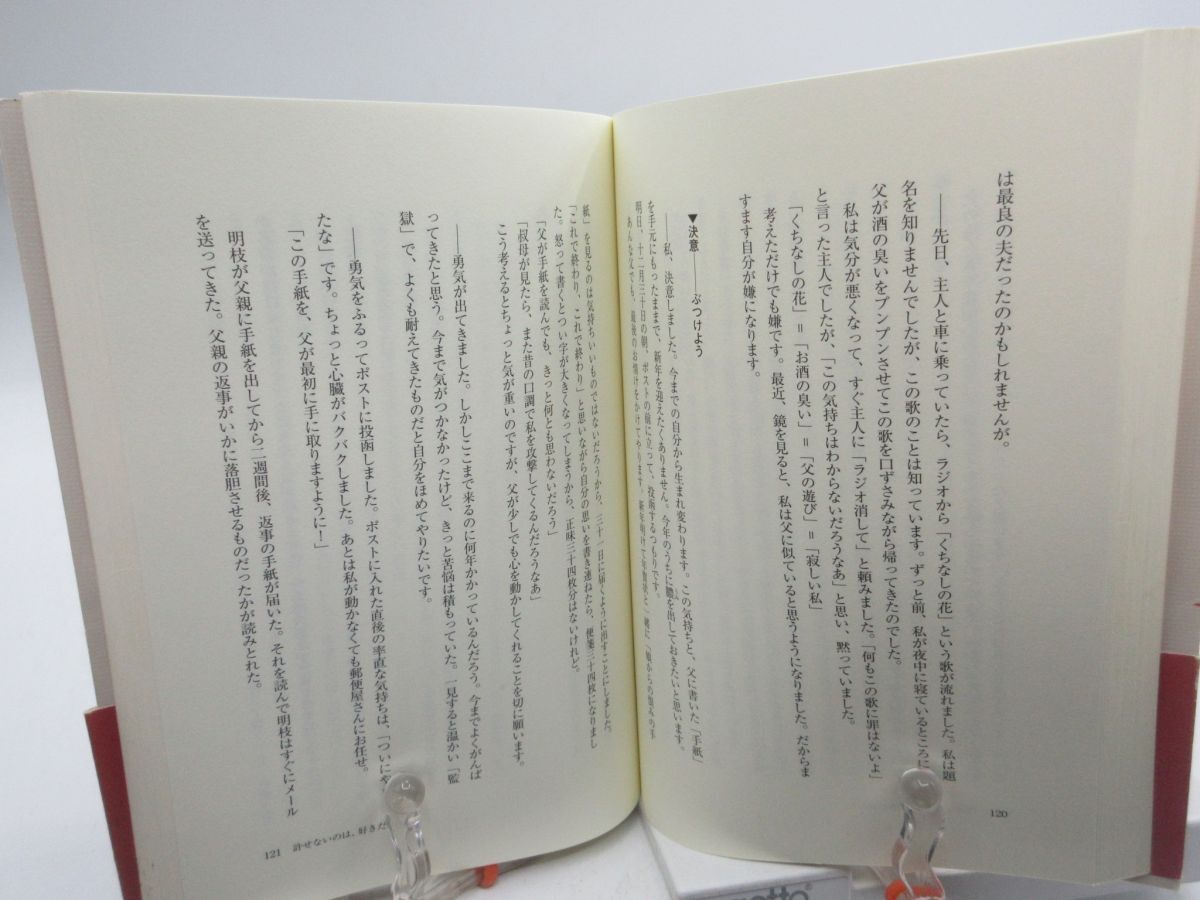 は最良の夫だったのかもしれませんが。
――先日、主人と車に乗っていたら、ラジオから「くちなしの花」という歌が流れました。私は題
名を知りませんでしたが、この歌のことは知っています。ずっと前、私が夜中に寝ているところに
父が酒の臭いをプンプンさせてこの歌を口ずさみながら帰ってきたのでした。
私は気分が悪くなって、すぐ主人に「ラジオ消して」と頼みました。「何もこの歌に罪はないよ」
と言った主人でしたが、「この気持ちはわからないだろうなあ」と思い、黙っていました。
「くちなしの花」＝「お酒の臭い」＝「父の遊び」＝「寂しい私」
考えただけでも嫌です。最近、鏡を見ると、私は父に似ていると思うようになりました。だからま
すます自分が嫌になります。
▼決意――ぶつけよう
――私、決意しました。今までの自分から生まれ変わります。この気持ちと、父に書いた「手紙」
を手元にもったままで、新年を迎えたくありません。今年のうちに膿を出しておきたいと思います。
明日、十二月三十日の朝、ポストの前に立って、投函するつもりです。
あんな父でも、最後のお情けをかけてやります。新年明けて年賀状と一緒に「娘からの恨みの手
120
紙」を見るのは気持ちいいものではないだろうから、三十一日に届くように出すことにしました。
「これで終わり、これで終わり」と思いながら自分の思いを書き連ねたら、便箋三十四枚になりまし
た。怒って書くとつい字が大きくなってしまうから、正味三十四枚分はないけれど。
「父が手紙を読んでも、きっと何とも思わないだろう」
「叔母が見たら、また昔の口調で私を攻撃してくるんだろうなあ」
こう考えるとちょっと気が重いのですが、父が少しでも心を動かしてくれることを切に願います。
――勇気が出てきました。しかしここまで来るのに何年かかっているんだろう。今までよくがんば
ってきたと思う。今まで気がつかなかったけど、きっと苦悩は積もっていた。一見すると温かい「監
獄」で、よくも耐えてきたものだと自分をほめてやりたいです。
――勇気をふるってポストに投函しました。ポストに入れた直後の率直な気持ちは、「ついにや
たな」です。ちょっと心臓がバクバクしました。あとは私が動かなくても郵便屋さんにお任せ。
「この手紙を、父が最初に手に取りますように！」
明枝が父親に手紙を出してから二週間後、返事の手紙が届いた。それを読んで明枝はすぐにメール
を送ってきた。父親の返事がいかに落胆させるものだったかが読みとれた。
121 許せないのは、好きだ